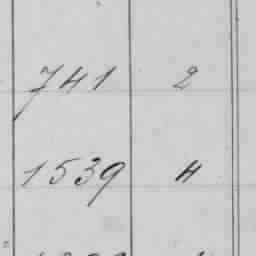 741 2
1539 4